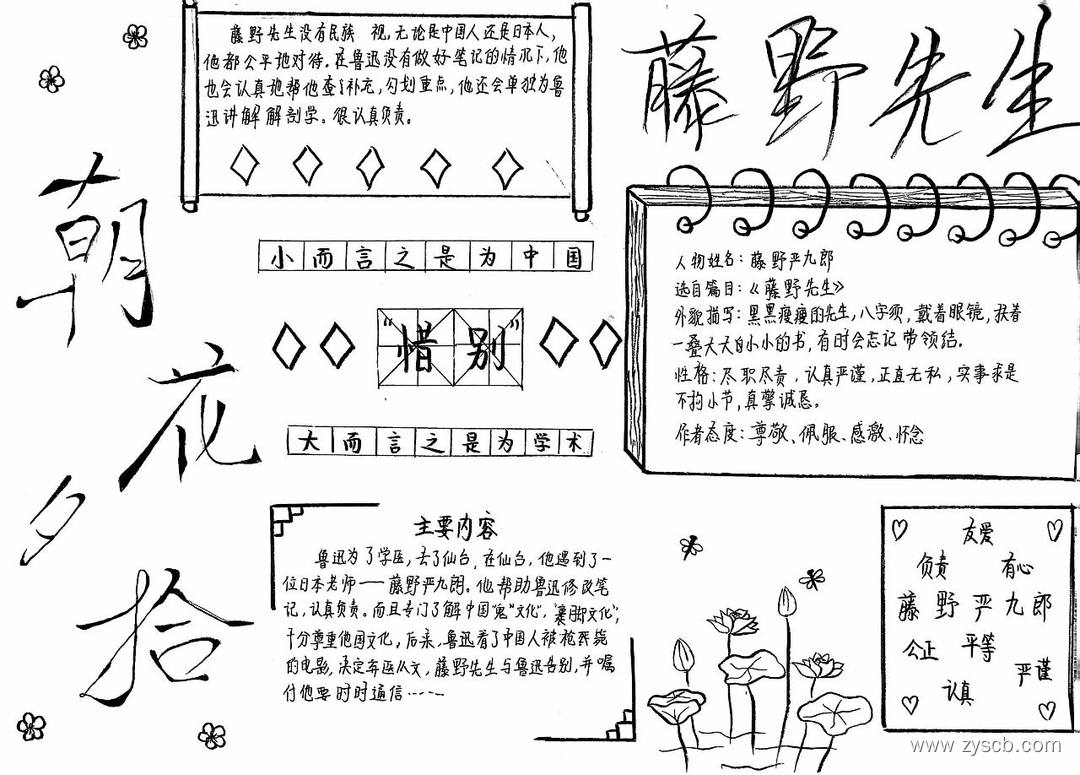 朝花夕拾
藤野先生
藤野先生没有民族 视，无论是中国人还是日本人，
他都公平地对待。在鲁迅没有做好笔记的情况下，他
也会认真地帮他查 补充，勾划重点，他还会单独为鲁
迅讲解解剖学。很认真负责。
小而言之是为中国
“惜别”
大而言之是为学术
人物姓名：藤野严九郎
选自篇目：《藤野先生》
外貌描写：黑黑瘦瘦的先生，八字须，戴着眼镜，挟着
一叠大大的小小的书，有时会忘记带领结。
性格：尽职尽责，认真严谨，正直无私，实事求是
不拘小节，真挚诚恳。
作者态度：尊敬、佩服、感激、怀念
主要内容
鲁迅为了学医，去了仙台，在仙台，他遇到了一
位日本老师——藤野严九朗。他帮助鲁迅修改笔
记，认真负责。而且专门了解中国“鬼”文化”，“裹脚文化”，
十分尊重他国文化，后来，鲁迅看了中国人被枪毙
的电影，决定弃医从文，藤野先生与鲁迅告别，并嘱
付他要时时通信……
友爱
负责 有心
藤野严九郎
公正 平等
严谨
认真
www.zyscb.com